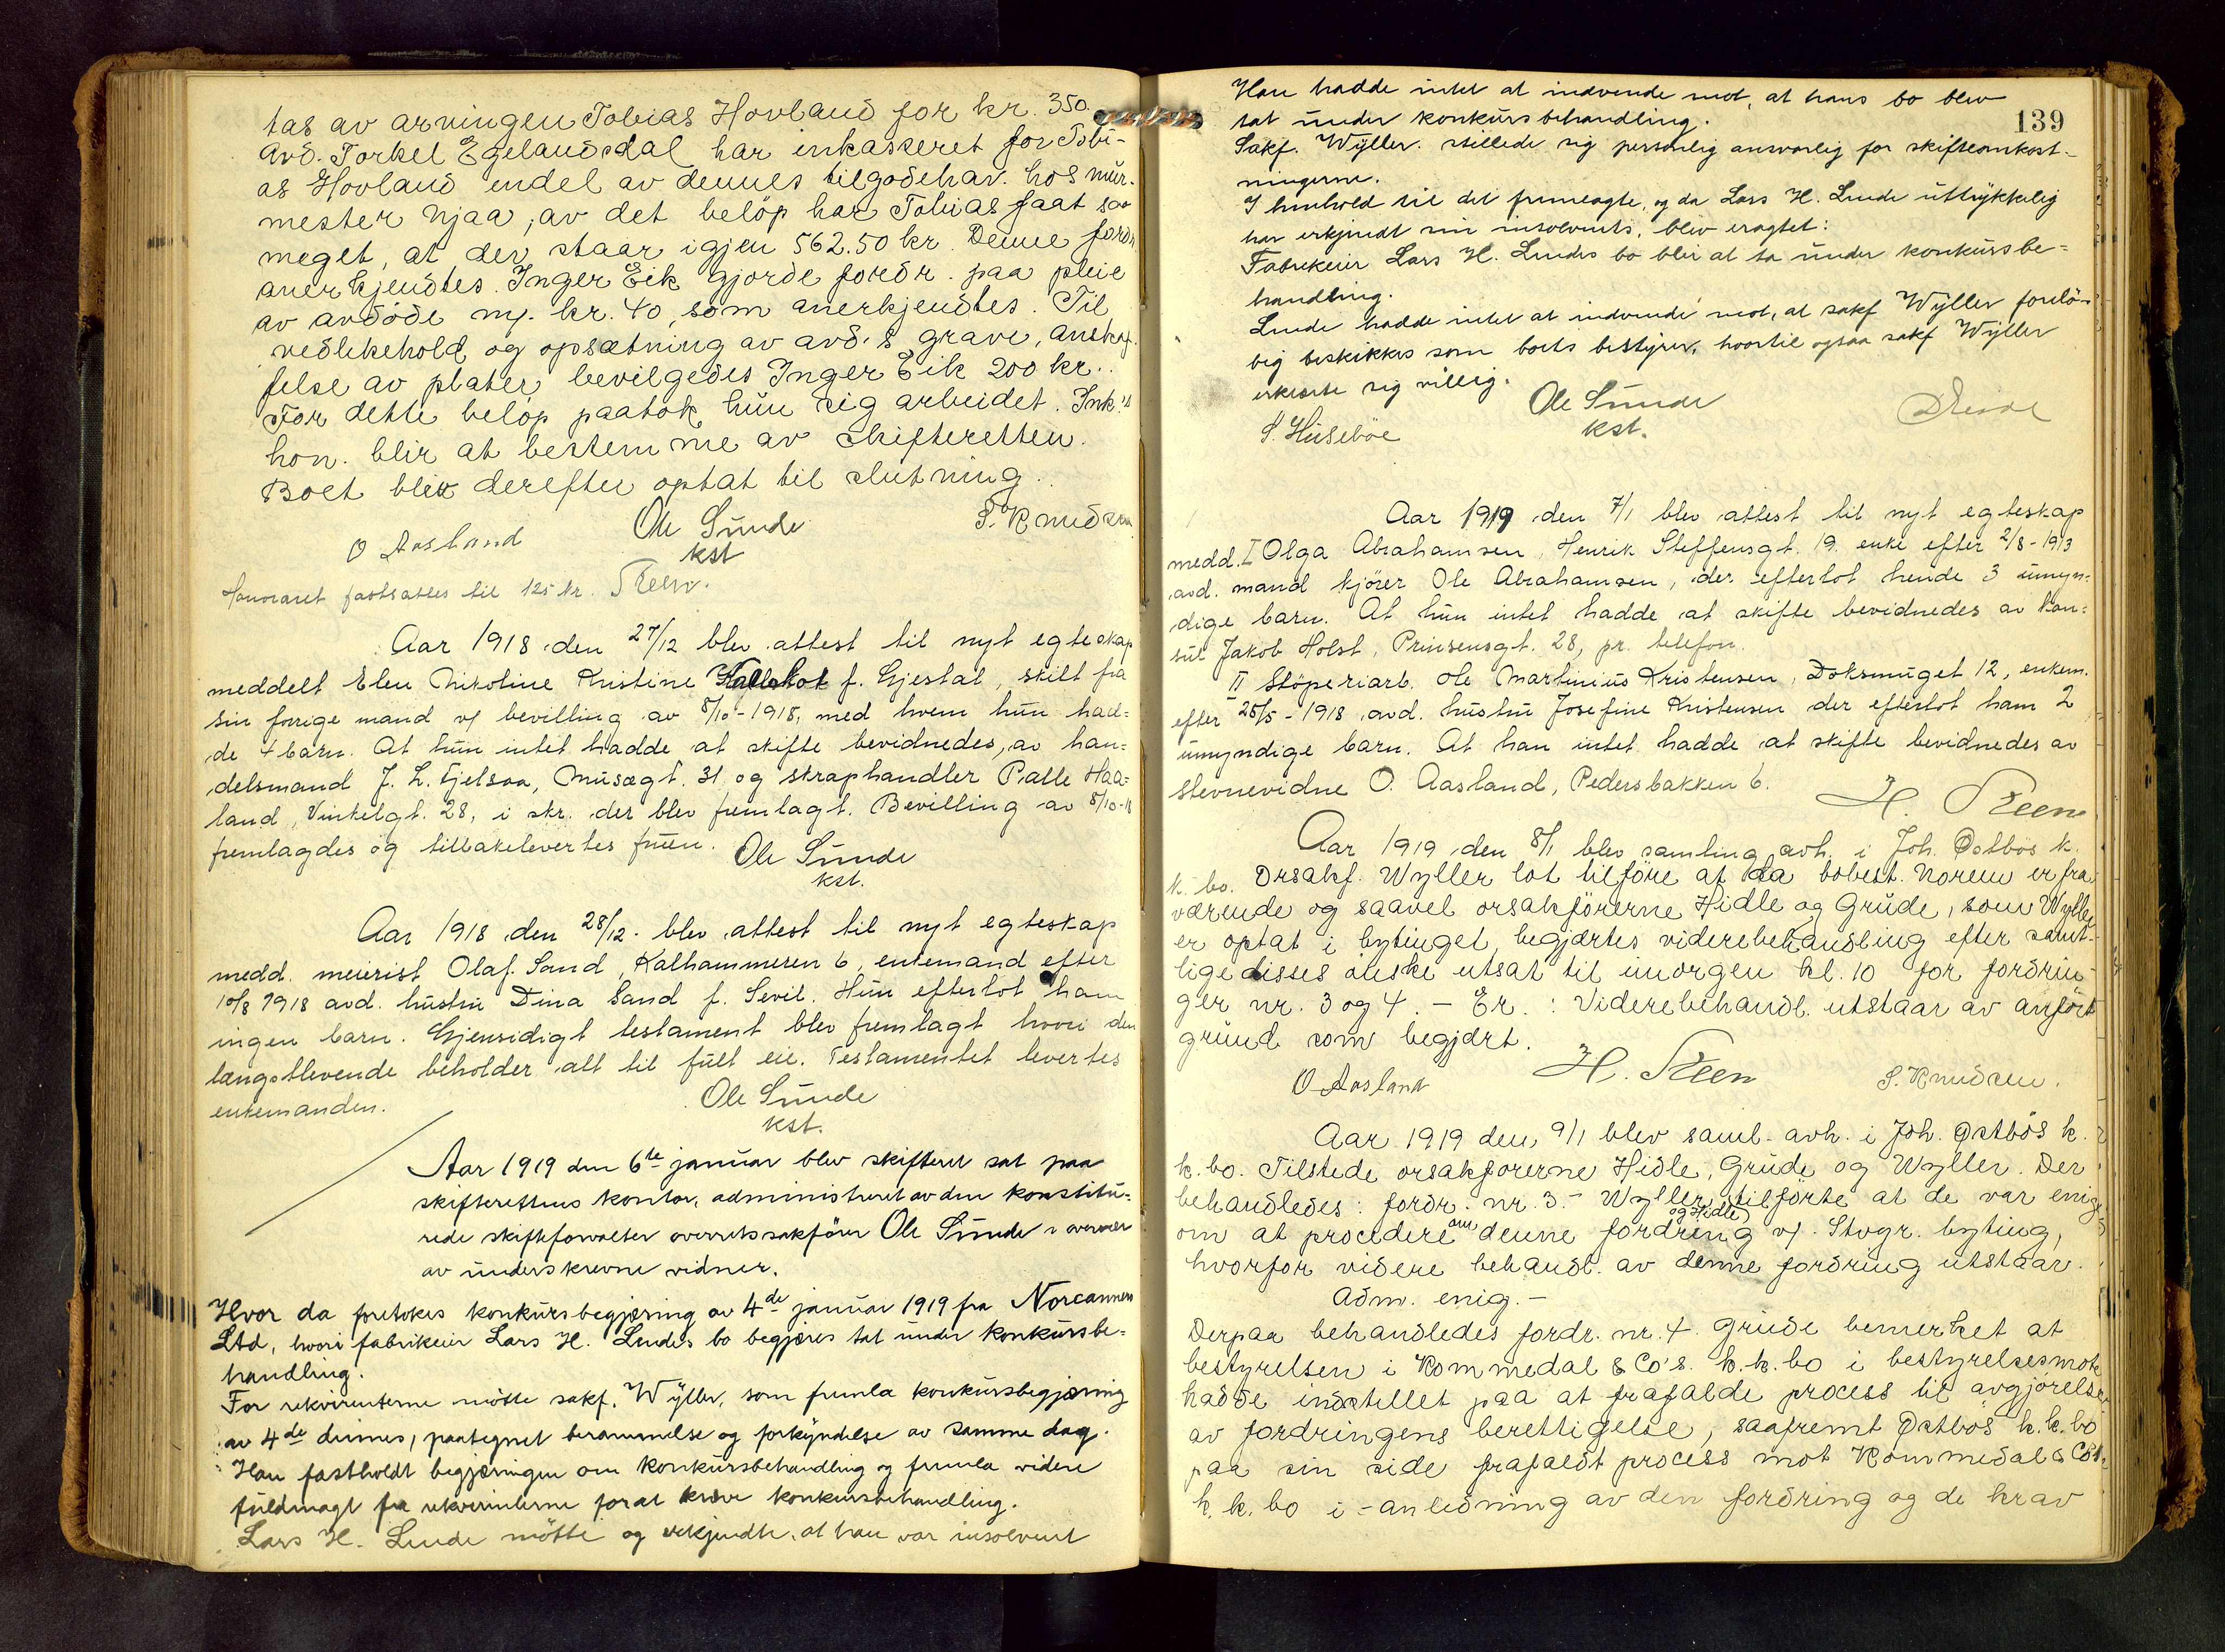 tas av arvingen Tobias Hovland for kr. 350.
Avd. Torkel Egelandsdal har inkasseret for Tobi-
as Hovland endel av dennes tilgodehav. hos mur-
mester Njaa, av det belöp har Tobias faat saa
meget, at der staar igjen 562.50 kr. Denne fordr.
anerkjendtes. Inger Eik gjorde fordr. paa pleie
av avdöde m/ kr. 40, som anerkjendtes. Til
vedlikehold og opsætning av avd.s grave, anskaf-
felse av plater bevilgedes Inger Eik 200 kr..
For dette belöp paatok hun sig arbeidet. Ink.'s
hon. blir at bestemme av skifteretten.
Boet blev derefter optat til slutning.
O Aasland Ole Sunde S. Knudsen
kst
Honoraret fastsattes til 125 kr. Steen.
Aar 1918 den 27/12 blev attest til nyt egteskap
meddelt Elen Nikoline Kristine f. Gjestal, skilt fra
sin forrige mand v/ bevilling av 8/10-1918, med hvem hun had-
de 4 barn. At hun intet hadde at skifte bevidnedes, av han-
delsmand J. L. Tjelsaa, Musægt. 31 og skraphandler Palle Haa-
land, Vinkelgt. 28, i skr. der blev fremlagt. Bevilling av 8/10-18
fremlagdes og tilbakelevertes fruen. Ole Sunde
kst.
Aar 1918 den 28/12. blev attest til nyt egteskap
medd. meierist Olaf Sand, Kalhammeren 6, enkemand efter
10/8 1918 avd. hustru Dina Sand f. Sevil. Hun efterlot ham
ingen barn. Gjensidigt testament blev fremlagt hvori den
længstlevende beholder alt til fult eie. Testamentet levertes
enkemanden. Ole Sunde
kst.
Aar 1919 den 6te januar blev skifteret sat paa
skifterettens kontor, administreret av den konstitu-
rede skifteforvalter overretssakförer Ole Sunde i overvær
av underskrevne vidner.
Hvor da foretokes konkursbegjæring av 4de januar 1919 fra Norcanners
Ltd, hvori fabrikeier Lars H. Lendes bo begjæres tat under konkursbe-
handling.
For rekvirenterne mötte sakf. Wyller, som fremla konkursbegjæring
av 4de dennes, paategnet berammelse og forkyndelse av samme dag.
Han fastholdt begjæringen om konkursbehandling og fremla videre
fuldmagt fra rekvirenterne forat kræve konkursbehandling.
Lars H. Lende mötte og erkjendte, at han var insolvent
139
Han hadde intet at indvende mot, at hans bo blev
tat under konkursbehandling.
Sakf. Wyller. stillede sig personlig ansvarlig for skifteomkost-
ningerne.
I henhold til det fremlagte, og da Lars H. Lende uttrykkelig
har erkjendt sin insolvents, blev eragtet:
Fabrikeier Lars H. Lendes bo blir at ta under konkursbe-
handling.
Lende hadde intet at indvende mot, at sakf Wyller forelö-
big beskikkes som boets bestyrer, hvortil ogsaa sakf Wyller
erklærte sig villig.
S. Huseböe Ole Sunde
kst.
Aar 1919 den 7/1 blev attest til nyt egteskap
medd. I Olga Abrahamsen, Henrik Steffensgt. 19. enke efter 2/8-1913
avd. mand kjörer Ole Abrahamsen, der efterlot hende 3 umyn-
dige barn. At hun intet hadde at skifte bevidnedes av kon-
sul Jakob Holst, Prinsensgt. 28, pr. telefon.
II Stöperiarb. Ole Martinius Kristensen, Doksmuget 12, enkem.
efter 28/5-1918 avd. hustru Josefine Kristensen der efterlot ham 2
umyndige barn. At han intet hadde at skifte bevidnedes av
Stevnevidne O. Aasland, Pedersbakken 6.
H. Steen
Aar 1919 den 8/1 blev samling avh. i Joh. Östbös k.
k. bo. Orsakf. Wyller lot tilföre at da bobest. Norem er fra-
værende og saavel orsakförerne Hidle og Grude, som Wyller
er optat i bytinget, begjærtes viderebehandling efter samt-
lige disses önske utsat til imorgen kl. 10 for fordrin-
ger nr. 3 og 4. – Er. : Viderebehandl. utstaar av anfört
grund som begjært.
O Aasland H. Steen S. Knudsen.
Aar 1919 den 9/1 blev saml. avh. i Joh. Östbös k.
k. bo. Tilstede orsakförerne Hidle, Grude og Wyller. Der
behandledes: fordr. nr. 3 – Wyller og Hidle tilförte at de var enige
om at procedere om denne fordring v/ Stvgr. byting,
hvorfor videre behandl. av denne fordring utstaar.
Adm. enig. –
Derpaa behandledes fordr. nr. 4 Grude bemerket at
bestyrelsen i Kommedal & Co's. k. k. bo i bestyrelsesmöte
hadde indstillet paa at frafalde process til avgjörelse
av fordringens berettigelse, saafremt Östbös k. k. bo
paa sin side frafaldt process mot Kommedal & Co's.
k. k. bo i anledning av den fordring og de krav